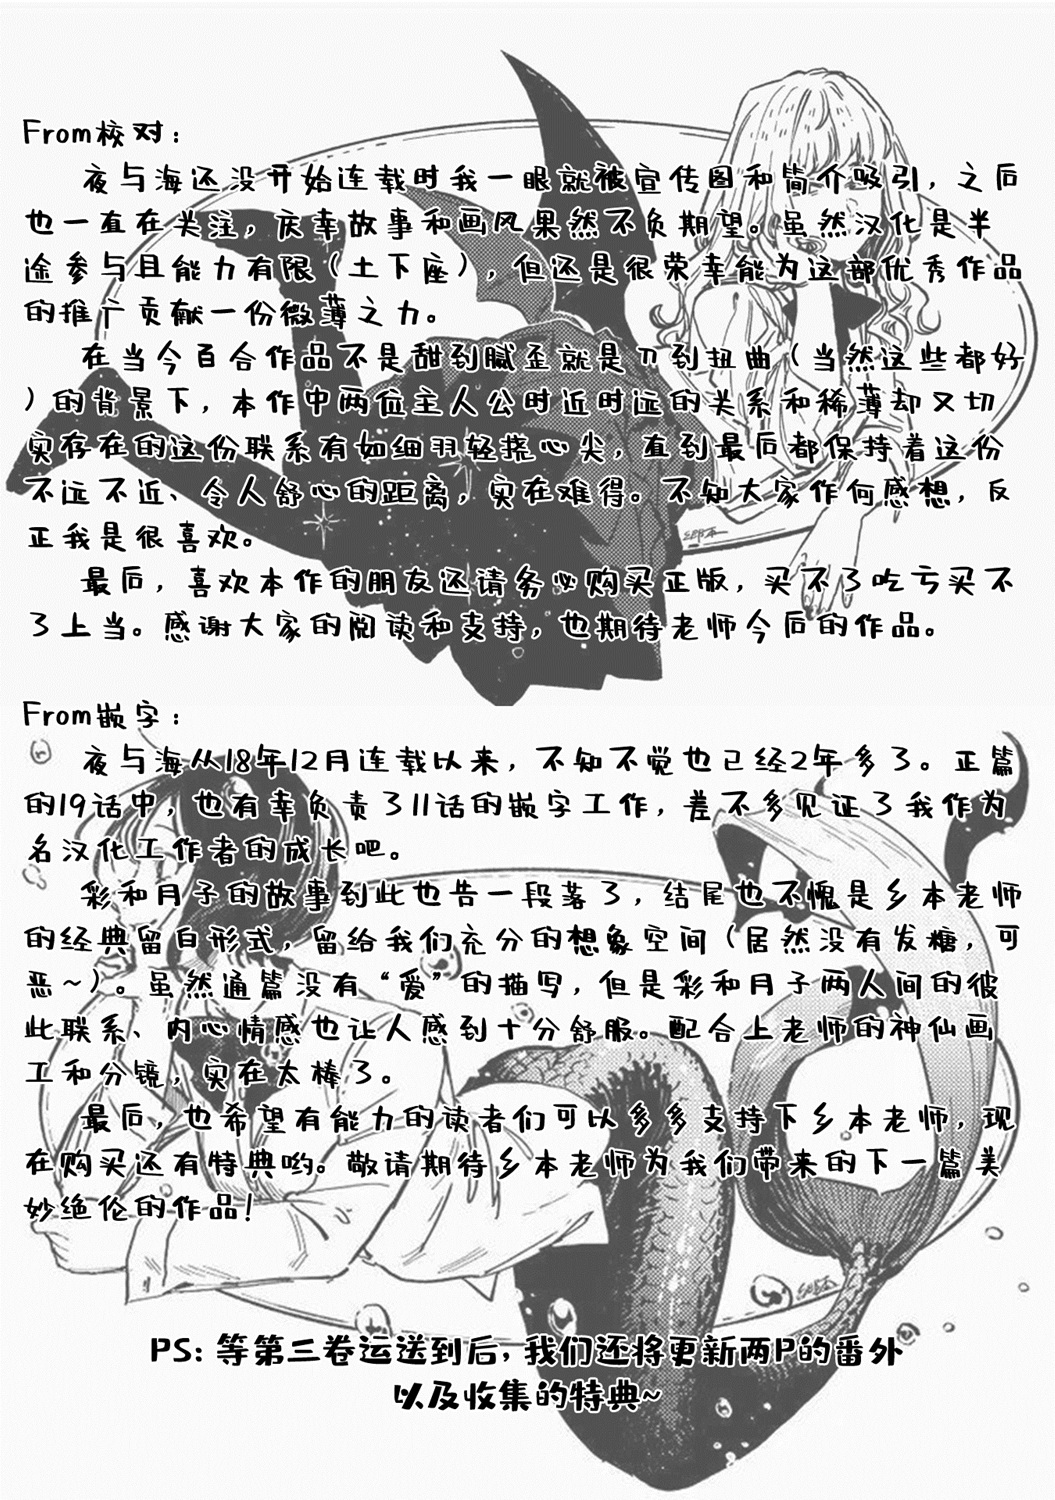 From校对：
夜与海还没开始连载时我一眼就被宣传图和简介吸引，之后
也一直在关注，庆幸故事和画风果然不负期望。虽然汉化是半
途参与且能力有限（土下座），但还是很荣幸能为这部优秀作品
的推广贡献一份微薄之力。
在当今百合作品不是甜到腻歪就是刀到扭曲（当然这些都好
）的背景下，本作中两位主人公时近时远的关系和稀薄却又切
实存在的这份联系有如细羽轻挠心尖，直到最后都保持着这份
不远不近、令人舒心的距离，实在难得。不知大家作何感想，反
正我是很喜欢。
最后，喜欢本作的朋友还请务必购买正版，买不了吃亏买不
了上当。感谢大家的阅读和支持，也期待老师今后的作品。
From嵌字：
夜与海从18年12月连载以来，不知不觉也已经2年多了。正篇
的19话中，也有幸负责了11话的嵌字工作，差不多见证了我作为
名汉化工作者的成长吧。
彩和月子的故事到此也告一段落了，结尾也不愧是乡本老师
的经典留白形式，留给我们充分的想象空间（居然没有发糖，可
恶~）。虽然通篇没有“爱”的描写，但是彩和月子两人间的彼
此联系、内心情感也让人感到十分舒服。配合上老师的神仙画
工和分镜，实在太棒了。
最后，也希望有能力的读者们可以多多支持下乡本老师，现
在购买还有特典哟。敬请期待乡本老师为我们带来的下一篇美
妙绝伦的作品！
PS：等第三卷运送到后，我们还将更新两P的番外
以及收集的特典~